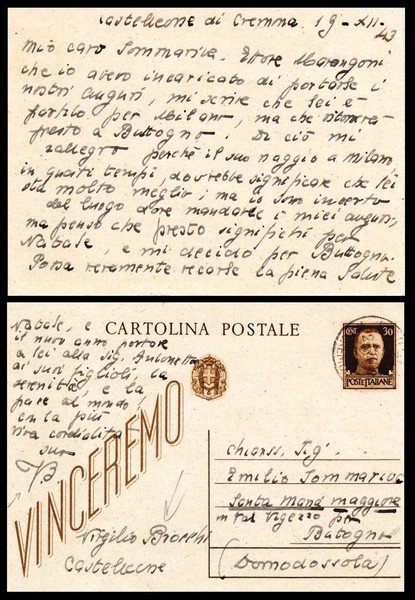 Castelleone di Cremona 19-XII-43
Mio caro Sommariva. Ettore Marangoni
che io avevo incaricato di portarle i
nostri auguri, mi scrive che lei è
partito per Milano, ma che ritornerà
presto a Buttogno. Di ciò mi
rallegro perché il suo viaggio a Milano
in questi tempi, dovrebbe significare che lei
sta molto meglio; ma io sono incerto
del luogo dove mandarle i miei auguri,
ma penso che presto significhi per
Natale, e mi decido per Buttogno.
Possa veramente recarle la piena salute
Natale, e
il nuovo anno portare
a lei alla sig. Antonietta
ai suoi figlioli, la
serenità e la
pace al mondo!
con la più
viva cordialità
suo
VB
CARTOLINA POSTALE
CENT. 30
POSTE ITALIANE
VINCEREMO
Chiariss. Sig.
Emilio Sommariva
Santa Maria Maggiore
in Val Vigezzo per
Butogno
(Domodossola)
Virgilio Brocchi
Castelleone